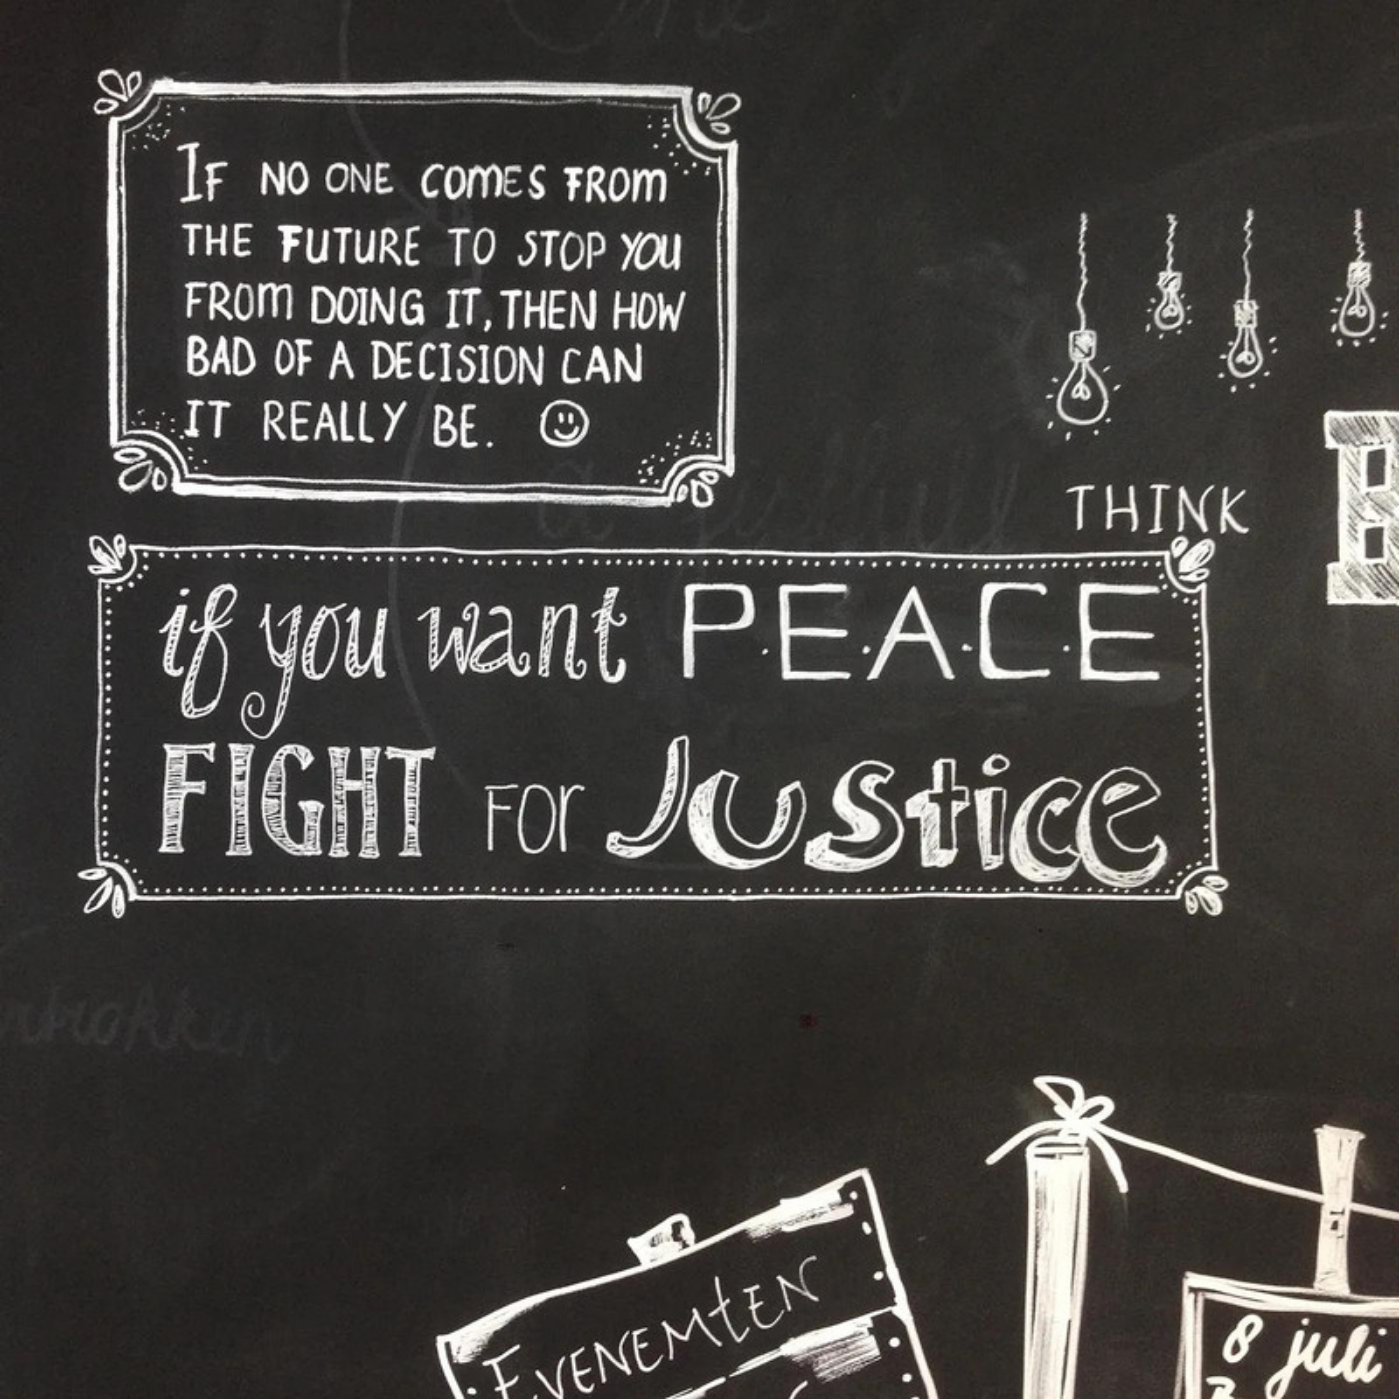 IF NO ONE COMES FROM
THE FUTURE TO STOP YOU
FROM DOING IT, THEN HOW
BAD OF A DECISION CAN
IT REALLY BE.
THINK
if you want P.E.A.C.E
FIGHT FOR JUStice
EVENEMtEN
8 juli